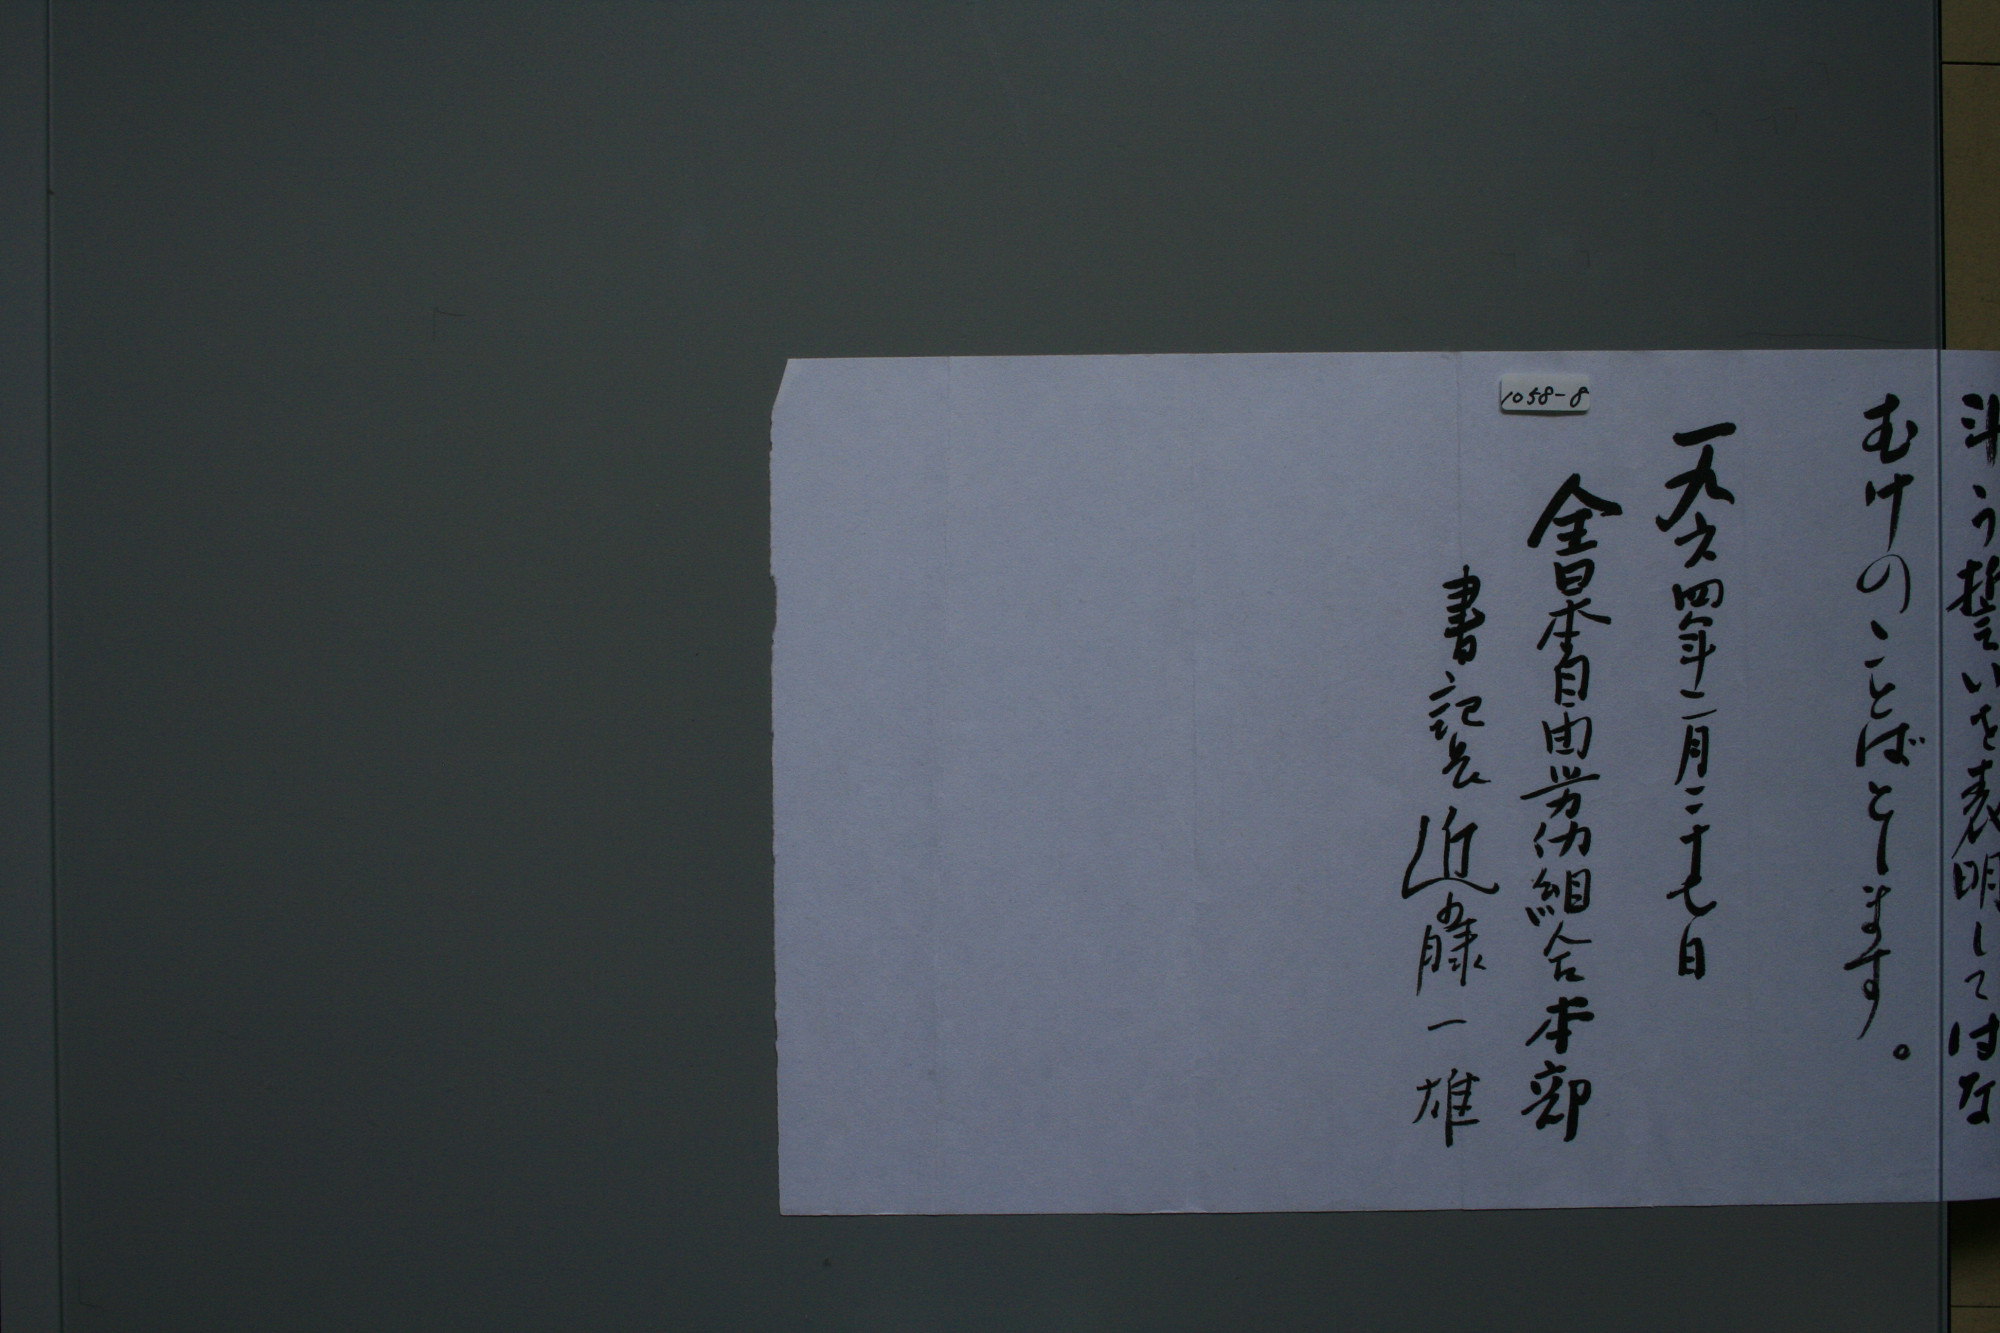 斗う誓いを表明してはな
むけのことばとします。
一九六四年二月二十七日
全日本自由労仂組合本部
書記長 近藤一雄
1058-8